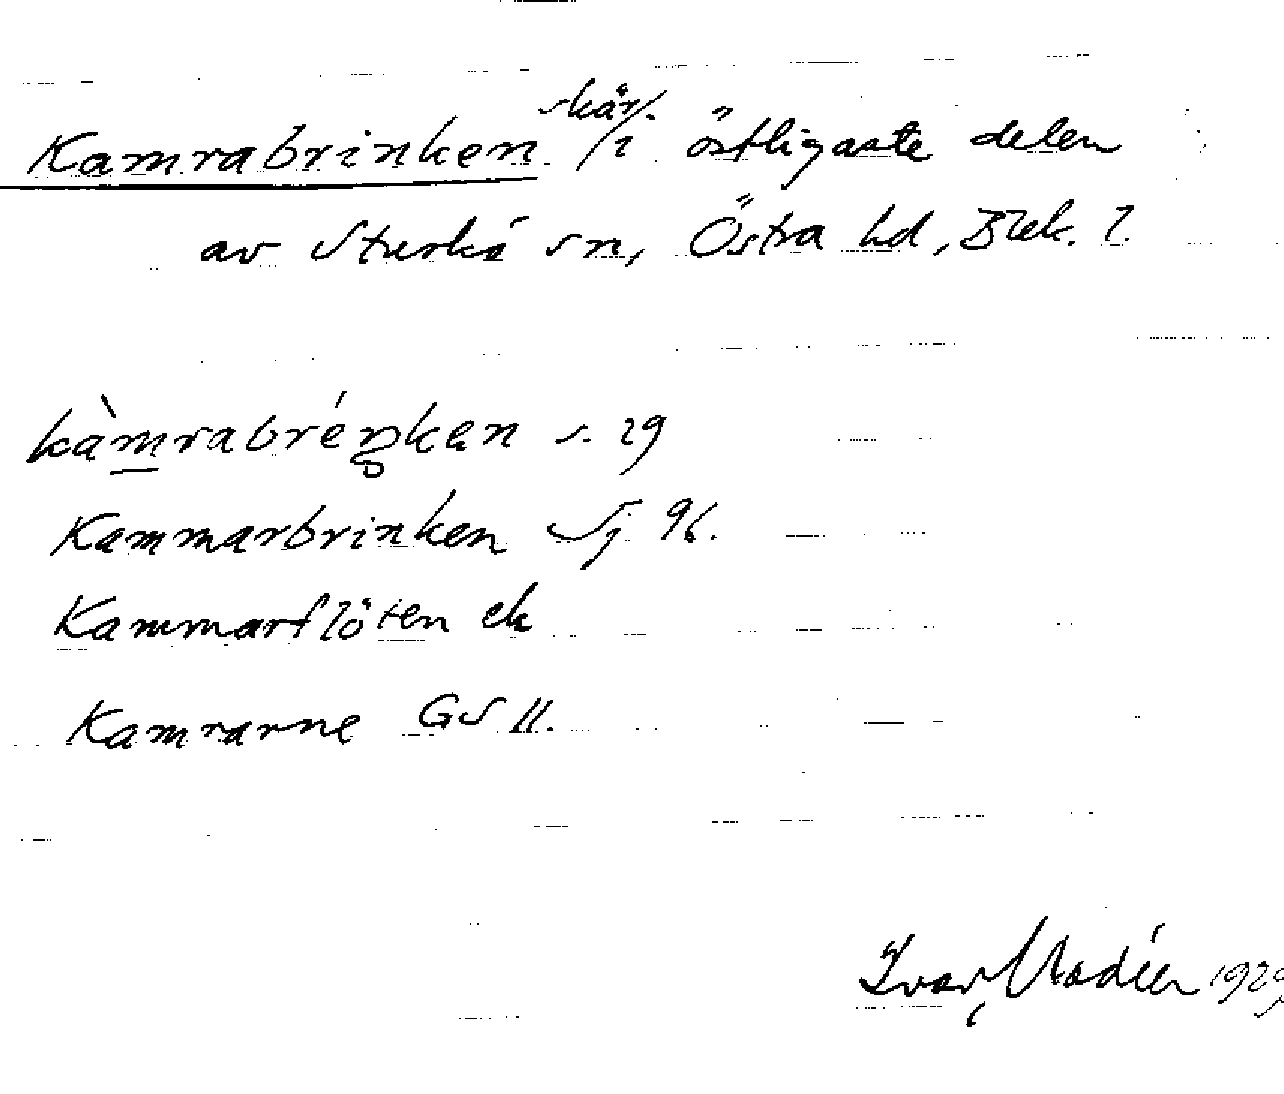 Kamrabrinken skär/. i östligaste delen
av Sturkö sn, Östra hd, Blek. l.
kàmrabréŋken s. 29
Kammarbrinken Sj 96.
Kammarflöten ek
Kamrarne GS II.
Ivar Modéer 1929